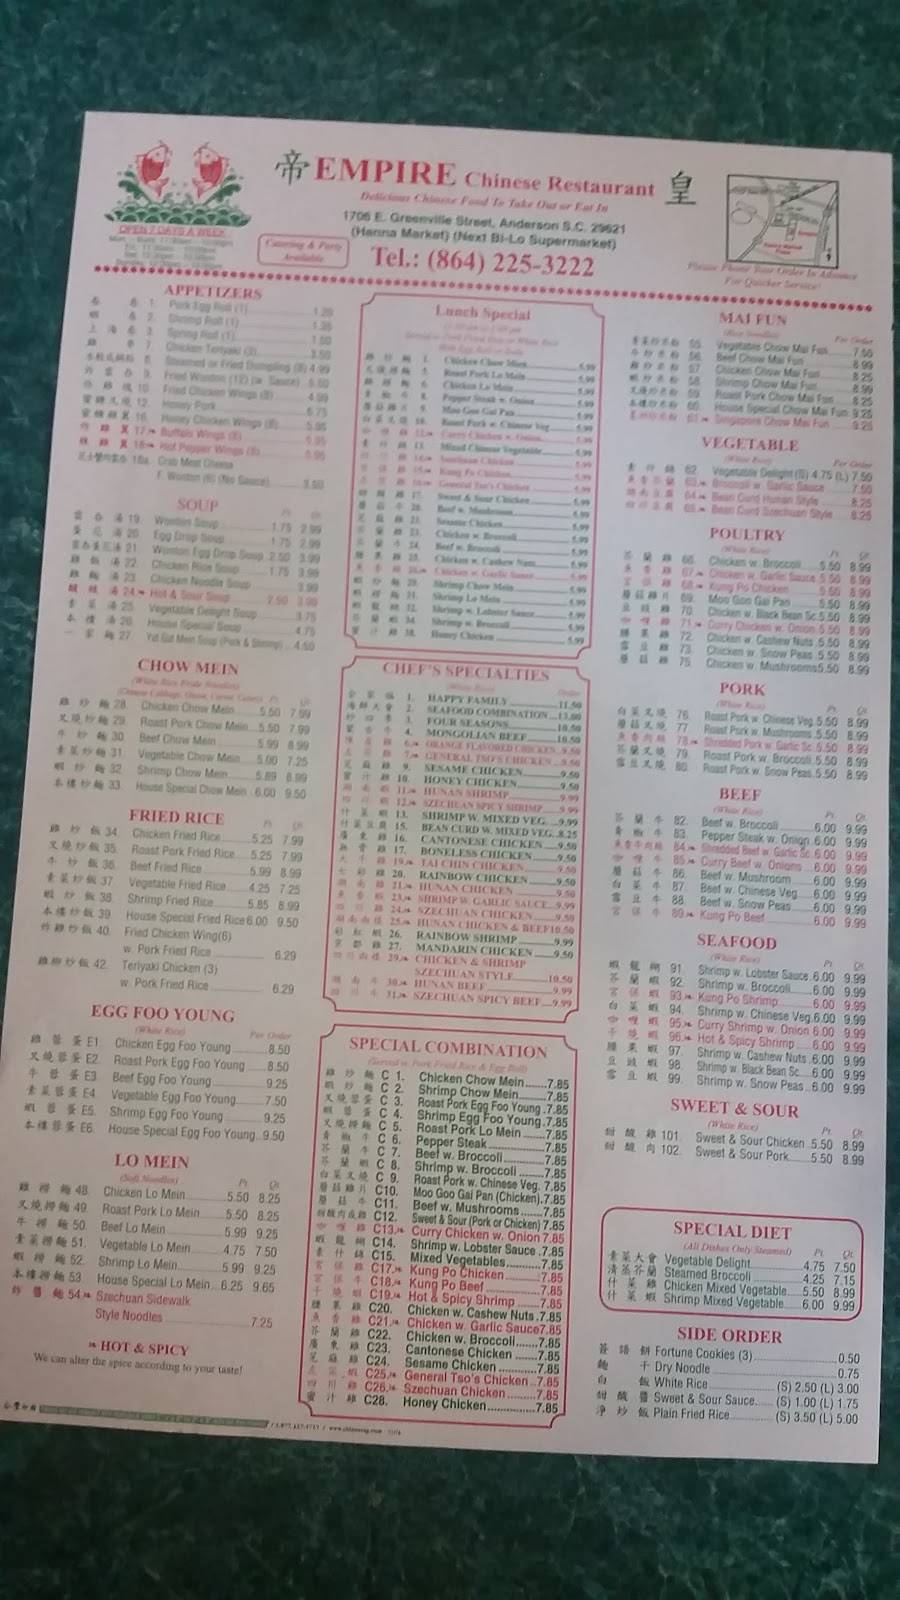 帝 EMPIRE Chinese Restaurant 皇
Delicious Chinese Food To Take Out or Eat In
1706 E. Greenville Street, Anderson S.C. 29621
(Hanna Market) (Next Bi-Lo Supermarket)
Tel.: (864) 225-3222
OPEN 7 DAYS A WEEK
Catering & Party
Available
Please Phone Your Order In Advance
For Quicker Service!
APPETIZERS
1. Pork Egg Roll (1)
2. Shrimp Roll (1)
3. Spring Roll (1)
7. Chicken Teriyaki (3)
Steamed or Fried Dumpling (8) 4.99
9. Fried Wonton (12) (w. Sauce)
10. Fried Chicken Wings (8) 4.99
12. Honey Pork 6.75
16. Honey Chicken Wings (8) 5.95
17. Buffalo Wings (8) 5.95
18. Hot Pepper Wings (8) 5.95
18a. Crab Meat Cheese
F. Wonton (6) (No Sauce) 3.50
SOUP
雲吞湯 19. Wonton Soup 1.75 2.99
蛋花湯 20. Egg Drop Soup 1.75 2.99
雲吞蛋花湯 21. Wonton Egg Drop Soup 2.50 3.99
雞飯湯 22. Chicken Rice Soup 1.75 3.99
雞麵湯 23. Chicken Noodle Soup 3.99
酸辣湯 24. Hot & Sour Soup 2.50 3.99
菜湯 25. Vegetable Delight Soup 3.75
本樓湯 26. House Special Soup 4.75
家麵 27. Yat Gat Mein Soup (Pork & Shrimp) 4.50
CHOW MEIN
(White Rice, Fride Noodles)
Pt. Qt.
雞炒麵 28. Chicken Chow Mein 5.50 7.99
叉燒炒麵 29. Roast Pork Chow Mein 5.50 7.99
牛炒麵 30. Beef Chow Mein 5.99 8.99
素菜炒麵 31. Vegetable Chow Mein 5.00 7.25
蝦炒麵 32. Shrimp Chow Mein 5.89 8.99
本樓炒麵 33. House Special Chow Mein 6.00 9.50
FRIED RICE
Pt. Qt.
雞炒飯 34. Chicken Fried Rice 5.25 7.99
叉燒炒飯 35. Roast Pork Fried Rice 5.25 7.99
牛炒飯 36. Beef Fried Rice 5.99 8.99
素菜炒飯 37. Vegetable Fried Rice 4.25 7.25
蝦炒飯 38. Shrimp Fried Rice 5.85 8.99
本樓炒飯 39. House Special Fried Rice 6.00 9.50
炸雞炒飯 40. Fried Chicken Wing(6)
w. Pork Fried Rice 6.29
雞柳炒飯 42. Teriyaki Chicken (3)
w. Pork Fried Rice 6.29
EGG FOO YOUNG
(White Rice) Per Order
雞蓉蛋 E1. Chicken Egg Foo Young 8.50
叉燒蓉蛋 E2. Roast Pork Egg Foo Young 8.50
牛蓉蛋 E3. Beef Egg Foo Young 9.25
素菜蓉蛋 E4. Vegetable Egg Foo Young 7.50
蝦蓉蛋 E5. Shrimp Egg Foo Young 9.25
本樓蓉蛋 E6. House Special Egg Foo Young 9.50
LO MEIN
(Soft Noodles) Pt. Qt.
雞撈麵 48. Chicken Lo Mein 5.50 8.25
叉燒撈麵 49. Roast Pork Lo Mein 5.50 8.25
牛撈麵 50. Beef Lo Mein 5.99 9.25
素菜撈麵 51. Vegetable Lo Mein 4.75 7.50
蝦撈麵 52. Shrimp Lo Mein 5.99 9.25
本樓撈麵 53. House Special Lo Mein 6.25 9.65
炸醬麵 54. Szechuan Sidewalk
Style Noodles 7.25
HOT & SPICY
We can alter the spice according to your taste!
Lunch Special
1. Chicken Chow Mein 5.99
5. Roast Pork Lo Mein 5.99
6. Chicken Lo Mein 5.99
8. Pepper Steak w. Onion 5.99
9. Moo Goo Gai Pan 5.99
10. Roast Pork w. Chinese Veg 5.99
Curry Chicken w. Onion 5.99
13. Mixed Chinese Vegetable 5.99
Szechuan Chicken 5.99
Kung Po Chicken 5.99
General Tso's Chicken 5.99
17. Sweet & Sour Chicken 5.99
Beef w. Mushroom 5.99
Sesame Chicken 5.99
Chicken w. Broccoli 5.99
24. Beef w. Broccoli 5.99
Chicken w. Cashew Nuts 5.99
Chicken w. Garlic Sauce 5.99
Shrimp Chow Mein 5.99
31. Shrimp Lo Mein 5.99
Shrimp w. Lobster Sauce 5.99
34. Shrimp w. Broccoli 5.99
Honey Chicken 5.99
CHEF'S SPECIALTIES
(White Rice) Order
全家福 1. HAPPY FAMILY 11.50
海鮮大會 2. SEAFOOD COMBINATION 13.00
炒四季 3. FOUR SEASONS 10.50
蒙古牛 4. MONGOLIAN BEEF 10.50
陳皮雞 6. ORANGE FLAVORED CHICKEN 9.50
左宗雞 7. GENERAL TSO'S CHICKEN 9.50
芝麻雞 9. SESAME CHICKEN 9.50
蜜汁雞 10. HONEY CHICKEN 9.50
湖南蝦 11. HUNAN SHRIMP 9.99
四川蝦 12. SZECHUAN SPICY SHRIMP 9.99
什菜蝦 13. SHRIMP W. MIXED VEG. 9.99
什菜豆腐 15. BEAN CURD W. MIXED VEG. 8.25
廣東雞 16. CANTONESE CHICKEN 9.50
無骨雞 17. BONELESS CHICKEN 9.50
大千雞 19. TAI CHIN CHICKEN 9.50
七彩雞 20. RAINBOW CHICKEN 9.50
湖南雞 21. HUNAN CHICKEN 9.50
魚香蝦 23. SHRIMP W. GARLIC SAUCE 9.99
四川雞 24. SZECHUAN CHICKEN 9.50
湖南兩樣 25. HUNAN CHICKEN & BEEF 10.50
彩虹蝦 26. RAINBOW SHRIMP 9.99
京都雞 27. MANDARIN CHICKEN 9.50
四川兩樣 29. CHICKEN & SHRIMP
SZECHUAN STYLE 10.50
湖南牛 30. HUNAN BEEF 9.99
四川牛 31. SZECHUAN SPICY BEEF 9.99
SPECIAL COMBINATION
(Served w. Pork Fried Rice & Egg Roll)
雞炒麵 C 1. Chicken Chow Mein 7.85
蝦炒麵 C 2. Shrimp Chow Mein 7.85
叉燒蓉蛋 C 3. Roast Pork Egg Foo Young 7.85
蝦蓉蛋 C 4. Shrimp Egg Foo Young 7.85
叉燒撈麵 C 5. Roast Pork Lo Mein 7.85
青椒牛 C 6. Pepper Steak 7.85
芥蘭牛 C 7. Beef w. Broccoli 7.85
芥蘭蝦 C 8. Shrimp w. Broccoli 7.85
白菜叉燒 C 9. Roast Pork w. Chinese Veg. 7.85
蘑菇雞片 C10. Moo Goo Gai Pan (Chicken) 7.85
蘑菇牛 C11. Beef w. Mushrooms 7.85
甜酸肉或雞 C12. Sweet & Sour (Pork or Chicken) 7.85
咖喱雞 C13. Curry Chicken w. Onion 7.85
蝦龍糊 C14. Shrimp w. Lobster Sauce 7.85
素什錦 C15. Mixed Vegetables 7.85
宮保雞 C17. Kung Po Chicken 7.85
宮保牛 C18. Kung Po Beef 7.85
干燒蝦 C19. Hot & Spicy Shrimp 7.85
腰果雞 C20. Chicken w. Cashew Nuts 7.85
魚香雞 C21. Chicken w. Garlic Sauce 7.85
芥蘭雞 C22. Chicken w. Broccoli 7.85
廣東雞 C23. Cantonese Chicken 7.85
芝麻雞 C24. Sesame Chicken 7.85
左宗雞 C25. General Tso's Chicken 7.85
四川雞 C26. Szechuan Chicken 7.85
蜜汁雞 C28. Honey Chicken 7.85
MAI FUN
(Rice Noodles) Per Order
素菜炒米粉 55. Vegetable Chow Mai Fun 7.50
牛炒米粉 56. Beef Chow Mai Fun 8.99
雞炒米粉 57. Chicken Chow Mai Fun 8.25
蝦炒米粉 58. Shrimp Chow Mai Fun 8.99
叉燒炒米粉 59. Roast Pork Chow Mai Fun 8.25
本樓炒米粉 60. House Special Chow Mai Fun 9.25
星洲炒米粉 61. Singapore Chow Mai Fun 9.25
VEGETABLE
(White Rice) Per Order
素什錦 62. Vegetable Delight (S) 4.75 (L) 7.50
魚香芥蘭 63. Broccoli w. Garlic Sauce 7.50
湖南豆腐 64. Bean Curd Hunan Style 8.25
四川豆腐 65. Bean Curd Szechuan Style 8.25
POULTRY
(White Rice) Pt. Qt.
芥蘭雞 66. Chicken w. Broccoli 5.50 8.99
魚香雞 67. Chicken w. Garlic Sauce 5.50 8.99
宮保雞 68. Kung Po Chicken 5.50 8.99
蘑菇雞片 69. Moo Goo Gai Pan 5.50 8.99
豆豉雞 70. Chicken w. Black Bean Sc. 5.50 8.99
咖喱雞 71. Curry Chicken w. Onion 5.50 8.99
腰果雞 72. Chicken w. Cashew Nuts 5.50 8.99
雪豆雞 73. Chicken w. Snow Peas 5.50 8.99
蘑菇雞 75. Chicken w. Mushrooms 5.50 8.99
PORK
(White Rice) Pt. Qt.
白菜叉燒 76. Roast Pork w. Chinese Veg. 5.50 8.99
蘑菇叉燒 77. Roast Pork w. Mushrooms 5.50 8.99
魚香肉絲 78. Shredded Pork w. Garlic Sc. 5.50 8.99
芥蘭叉燒 79. Roast Pork w. Broccoli 5.50 8.99
雪豆叉燒 80. Roast Pork w. Snow Peas 5.50 8.99
BEEF
(White Rice) Pt. Qt.
芥蘭牛 82. Beef w. Broccoli 6.00 9.99
青椒牛 83. Pepper Steak w. Onion 6.00 9.99
魚香牛肉絲 84. Shredded Beef w. Garlic Sc. 6.00 9.99
咖喱牛 85. Curry Beef w. Onions 6.00 9.99
蘑菇牛 86. Beef w. Mushroom 6.00 9.99
白菜牛 87. Beef w. Chinese Veg 6.00 9.99
雪豆牛 88. Beef w. Snow Peas 6.00 9.99
宮保牛 89. Kung Po Beef 6.00 9.99
SEAFOOD
(White Rice) Pt. Qt.
蝦龍糊 91. Shrimp w. Lobster Sauce 6.00 9.99
芥蘭蝦 92. Shrimp w. Broccoli 6.00 9.99
宮保蝦 93. Kung Po Shrimp 6.00 9.99
白菜蝦 94. Shrimp w. Chinese Veg. 6.00 9.99
咖喱蝦 95. Curry Shrimp w. Onion 6.00 9.99
干燒蝦 96. Hot & Spicy Shrimp 6.00 9.99
腰果蝦 97. Shrimp w. Cashew Nuts 6.00 9.99
豆豉蝦 98. Shrimp w. Black Bean Sc. 6.00 9.99
雪豆蝦 99. Shrimp w. Snow Peas 6.00 9.99
SWEET & SOUR
(White Rice) Pt. Qt.
甜酸雞 101. Sweet & Sour Chicken 5.50 8.99
甜酸肉 102. Sweet & Sour Pork 5.50 8.99
SPECIAL DIET
(All Dishes Only Steamed) Pt. Qt.
素菜大會 Vegetable Delight 4.75 7.50
清蒸芥蘭 Steamed Broccoli 4.25 7.15
什菜雞 Chicken Mixed Vegetable 5.50 8.99
什菜蝦 Shrimp Mixed Vegetable 6.00 9.99
SIDE ORDER
簽語餅 Fortune Cookies (3) 0.50
麵干 Dry Noodle 0.75
白飯 White Rice (S) 2.50 (L) 3.00
甜酸醬 Sweet & Sour Sauce (S) 1.00 (L) 1.75
淨炒飯 Plain Fried Rice (S) 3.50 (L) 5.00